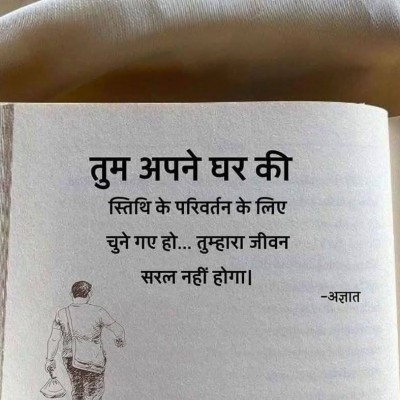 तुम अपने घर की
स्तिथि के परिवर्तन के लिए
चुने गए हो... तुम्हारा जीवन
सरल नहीं होगा।
-अज्ञात